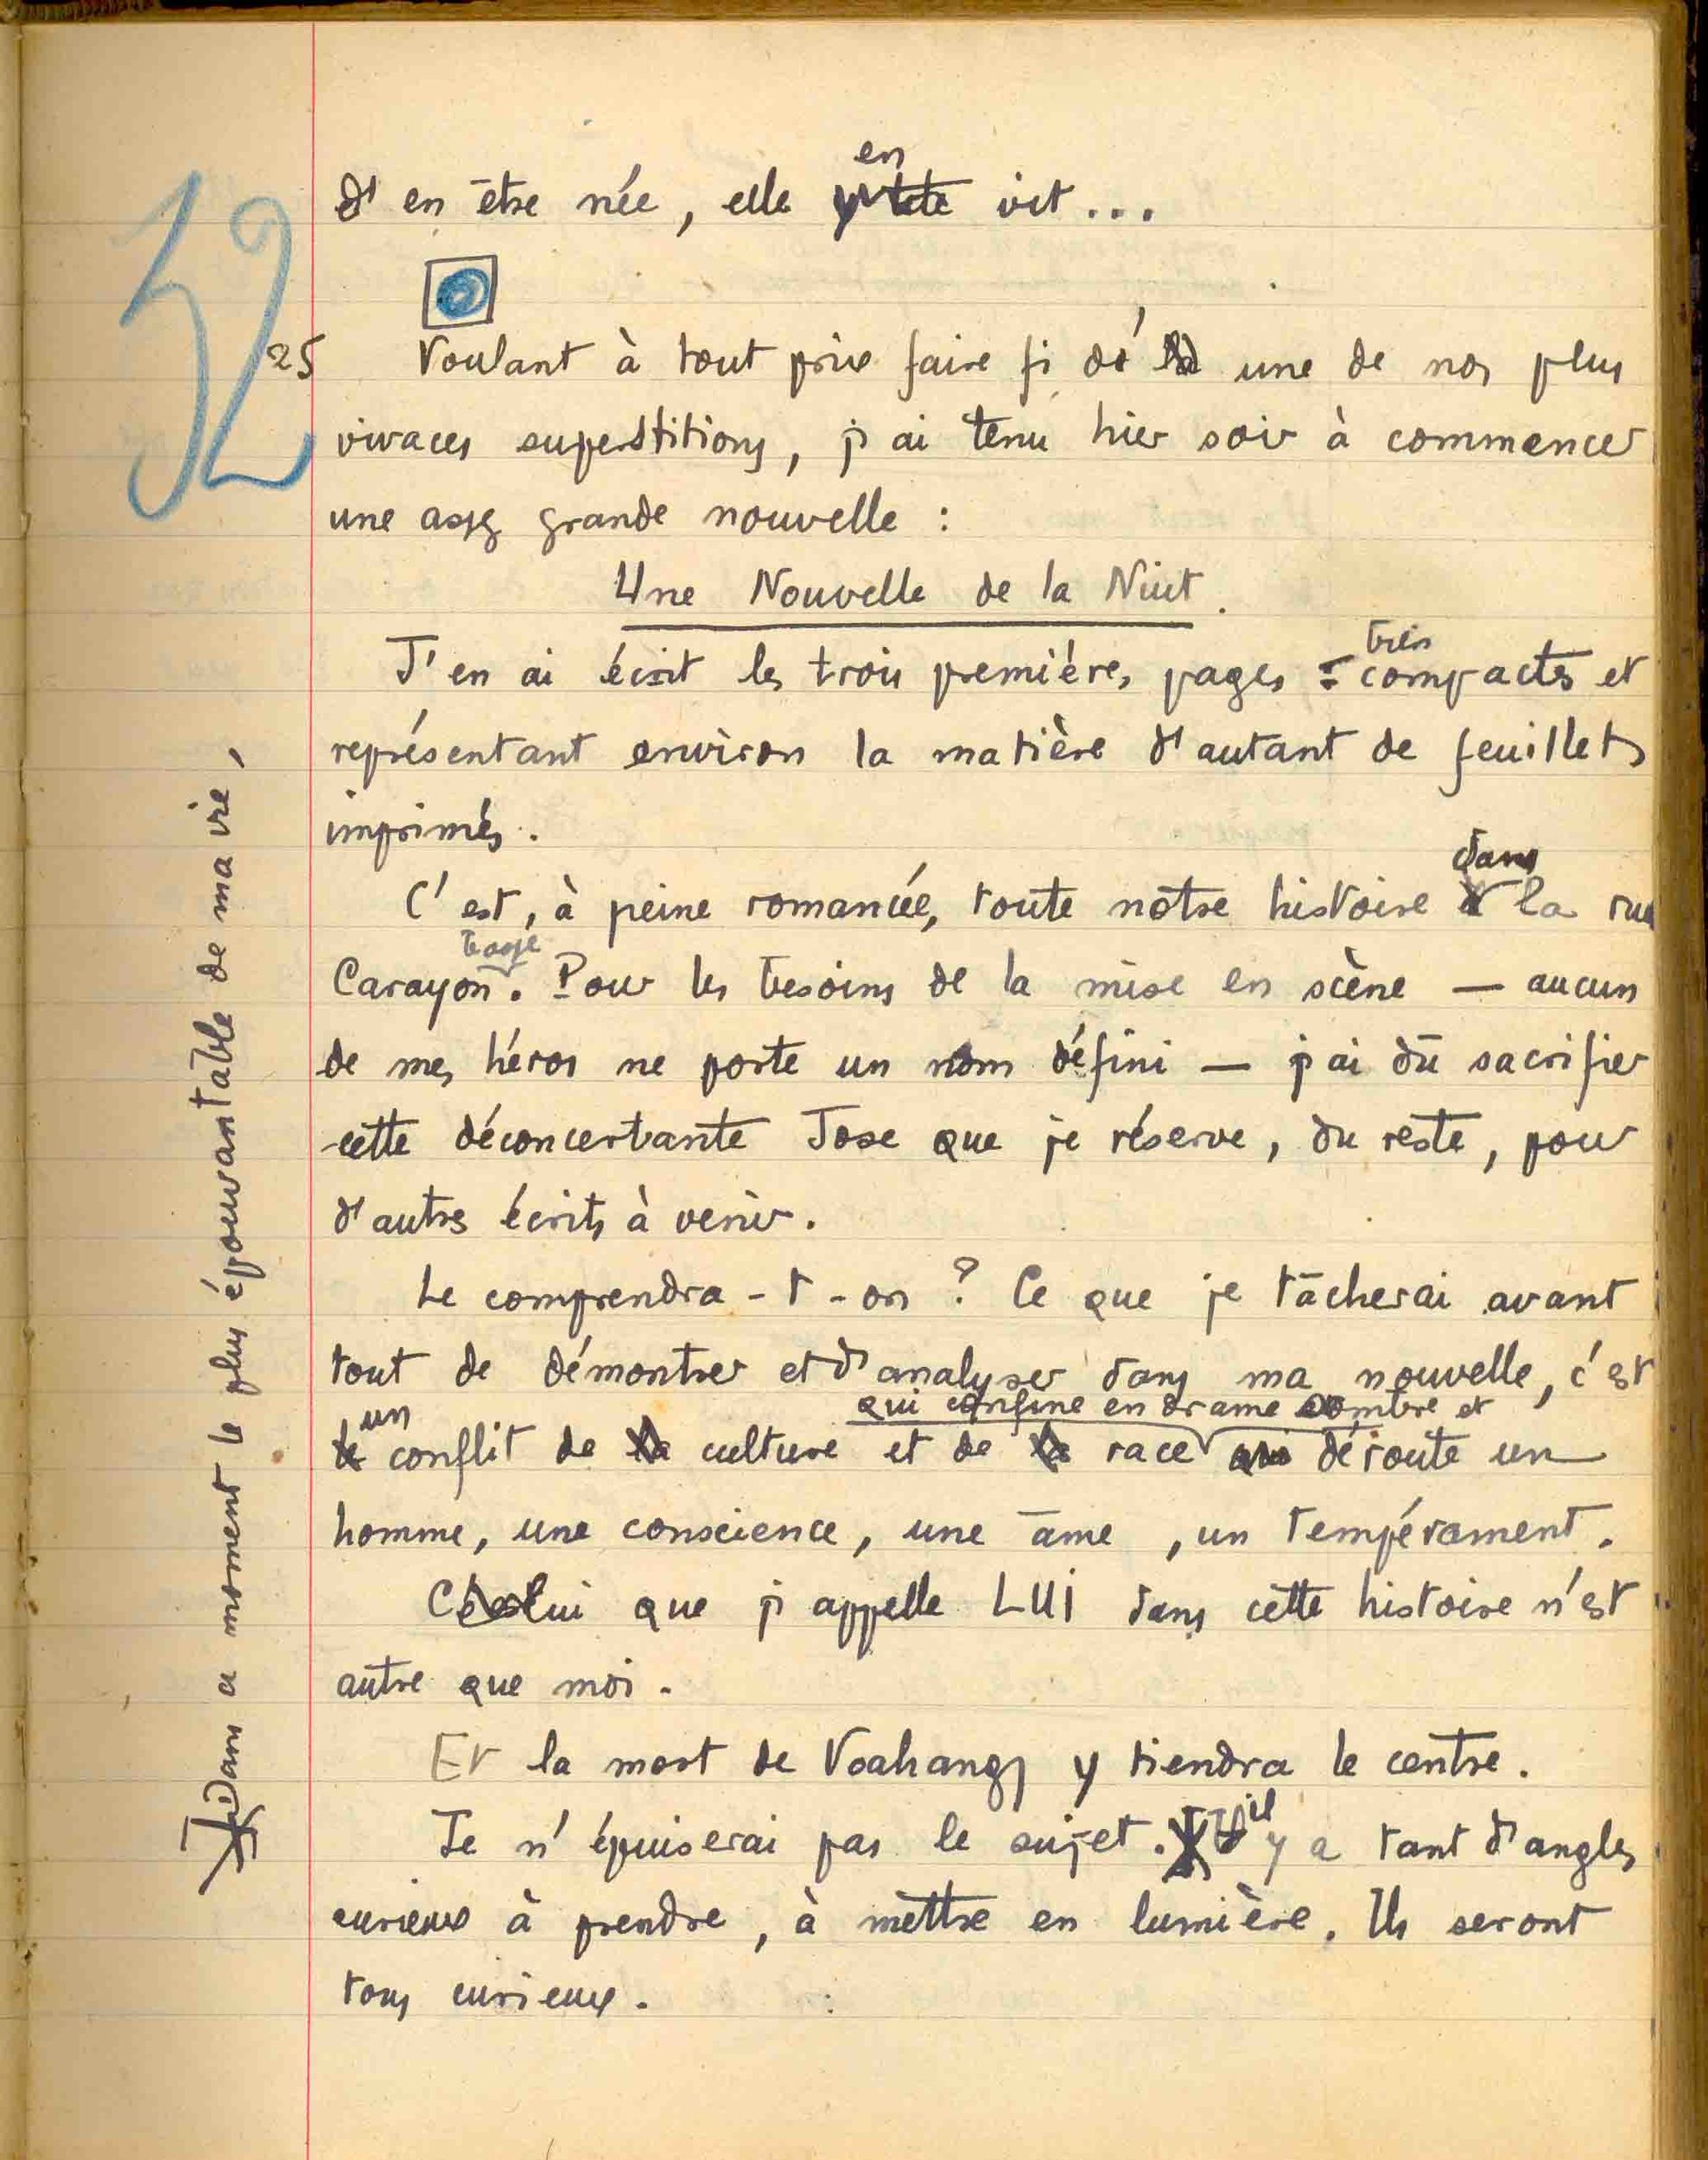 32
d'en être née, elle en vit...
25
Voulant à tout prix faire fi d'une de nos plus
vivaces superstitions, j'ai tenu hier soir à commencer
une assez grande nouvelle :
Une Nouvelle de la Nuit.
J'en ai écrit les trois premières pages très compactes et
représentant environ la matière d'autant de feuillets
imprimés.
C'est, à peine romancée, toute notre histoire dans la rue
Carayon basse. Pour les besoins de la mise en scène — aucun
de mes héros ne porte un nom défini — j'ai dû sacrifier
cette déconcertante Jose que je réserve, du reste, pour
d'autres écrits à venir.
Le comprendra-t-on ? Ce que je tâcherai avant
tout de démontrer et d'analyser dans ma nouvelle, c'est
un conflit de culture et de race qui confine en drame sombre et déroute un
homme, une conscience, une âme, un tempérament.
Celui que j'appelle LUI dans cette histoire n'est
autre que moi.
Et la mort de Voahangy y tiendra le centre.
Je n'épuiserai pas le sujet. il y a tant d'angles
curieux à prendre, à mettre en lumière. Ils seront
tous curieux.
Dans a moment le plus épouvantable de ma vie,